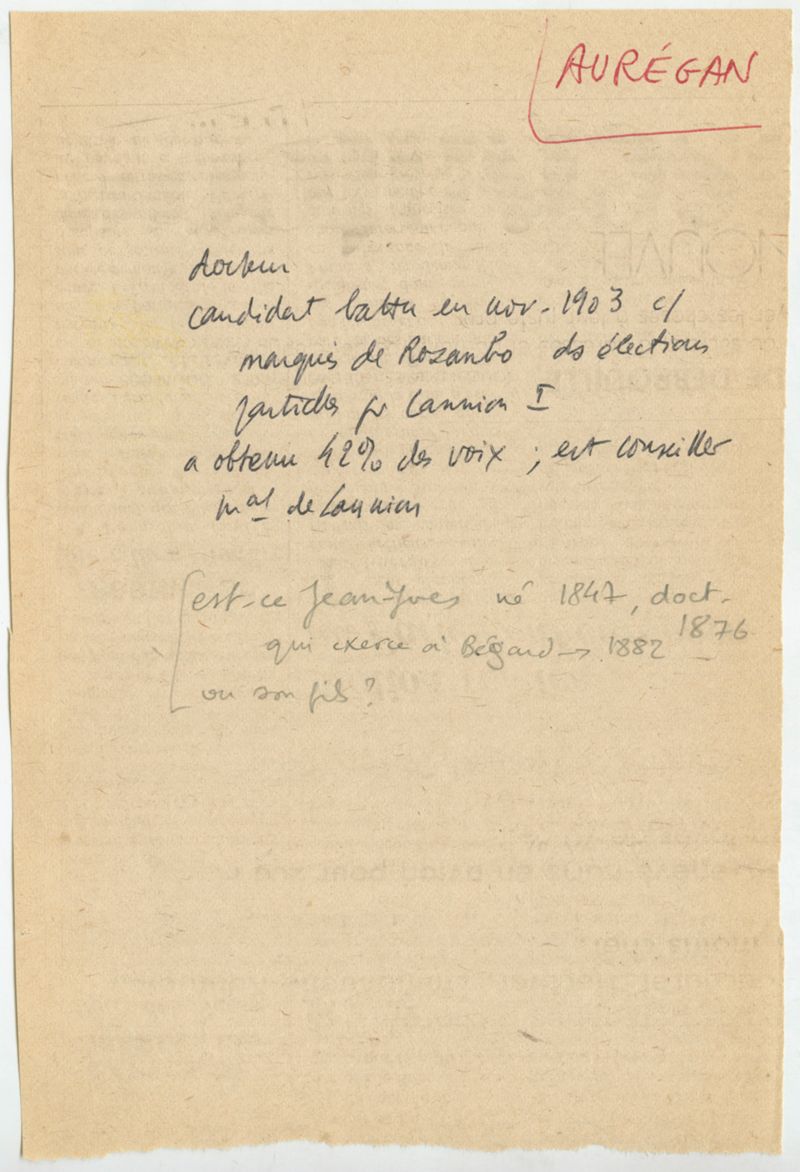 AURÉGAN
docteur
candidat battu en nov. 1903 c/
marquis de Rosanbo ds élections
partielles pr Lannion I
a obtenu 42% des voix ; est conseiller
mal de Lannion
est-ce Jean-Yves né 1847, doct.
1876
qui exerce à Bégard → 1882
ou son fils ?